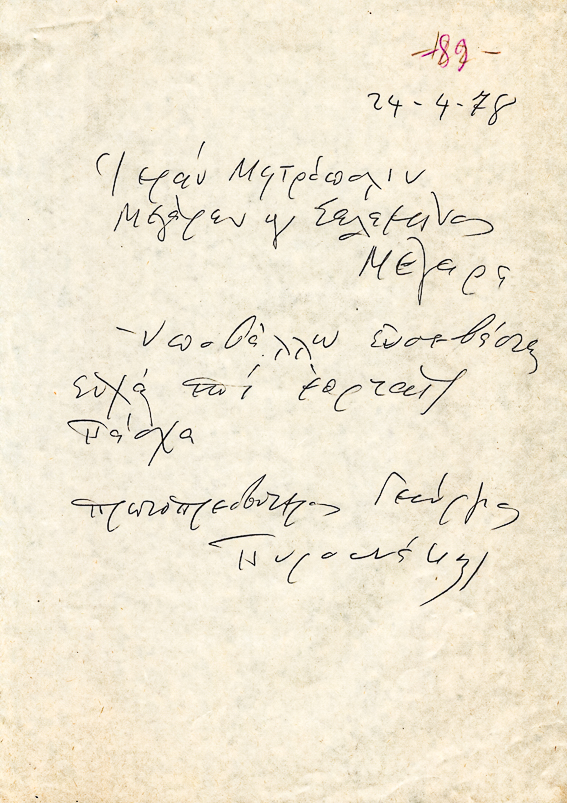 -189-
24-4-78
Ἱεράν Μητρόπολιν
Μεγάρων ϗ Σαλαμῖνος
Μέγαρα
Ὑποβάλλω εὐσεβάστως
εὐχάς ἐπί ἑορταῖς
Πάσχα
πρωτοπρεσβύτερος Γεώργιος
Πυρουνάκης